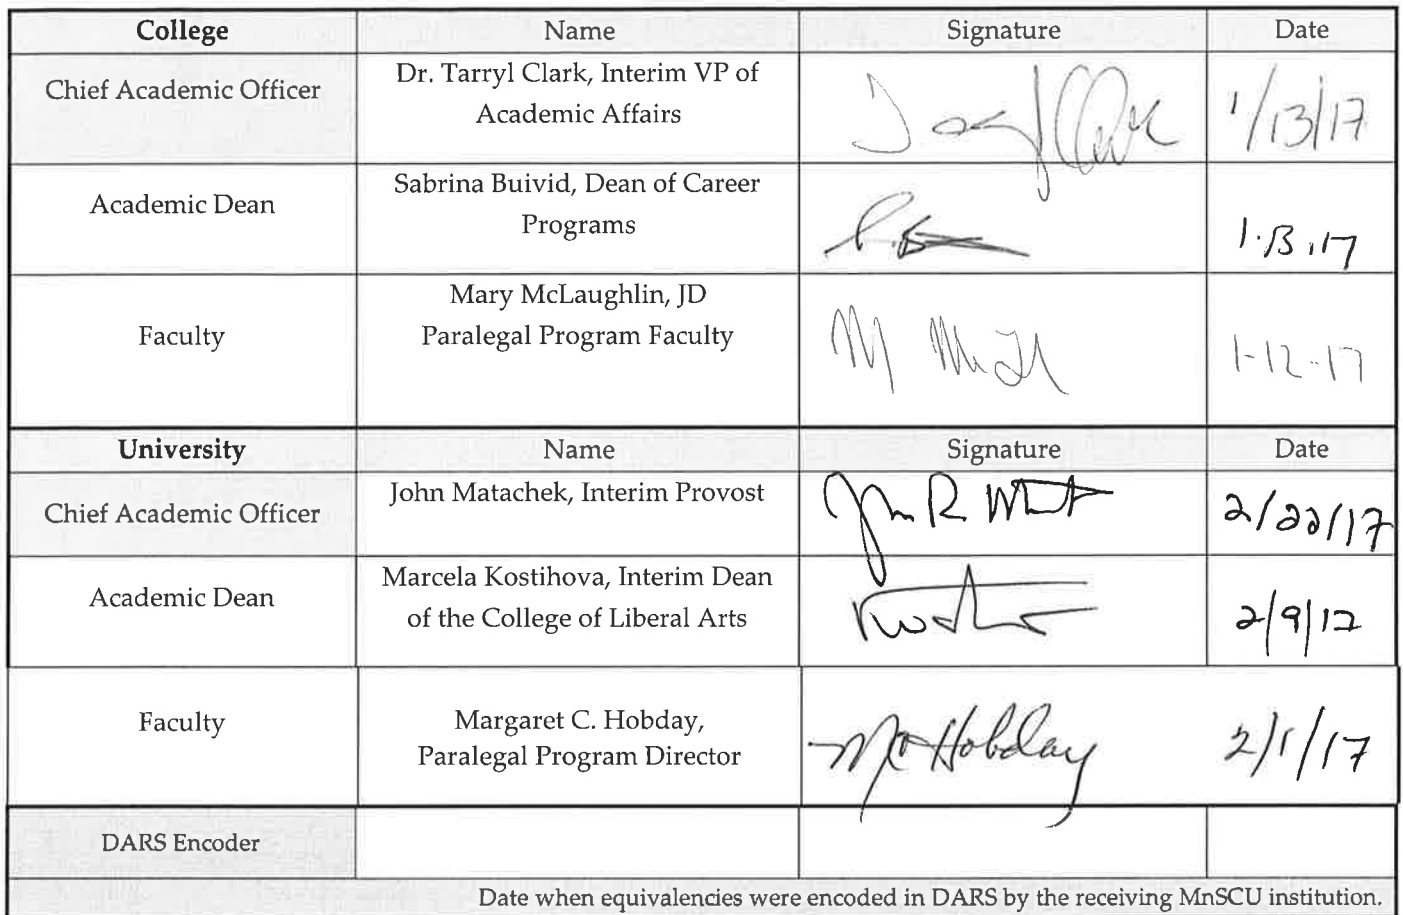 College Name Signature Date
Chief Academic Officer Dr. Tarryl Clark, Interim VP of
Academic Affairs
1/13/17
Academic Dean Sabrina Buivid, Dean of Career
Programs
1.13.17
Faculty Mary McLaughlin, JD
Paralegal Program Faculty
1-12-17
University Name Signature Date
Chief Academic Officer John Matachek, Interim Provost
2/22/17
Academic Dean Marcela Kostihova, Interim Dean
of the College of Liberal Arts
2/9/17
Faculty Margaret C. Hobday,
Paralegal Program Director
Hobday 2/1/17
DARS Encoder
Date when equivalencies were encoded in DARS by the receiving MnSCU institution.